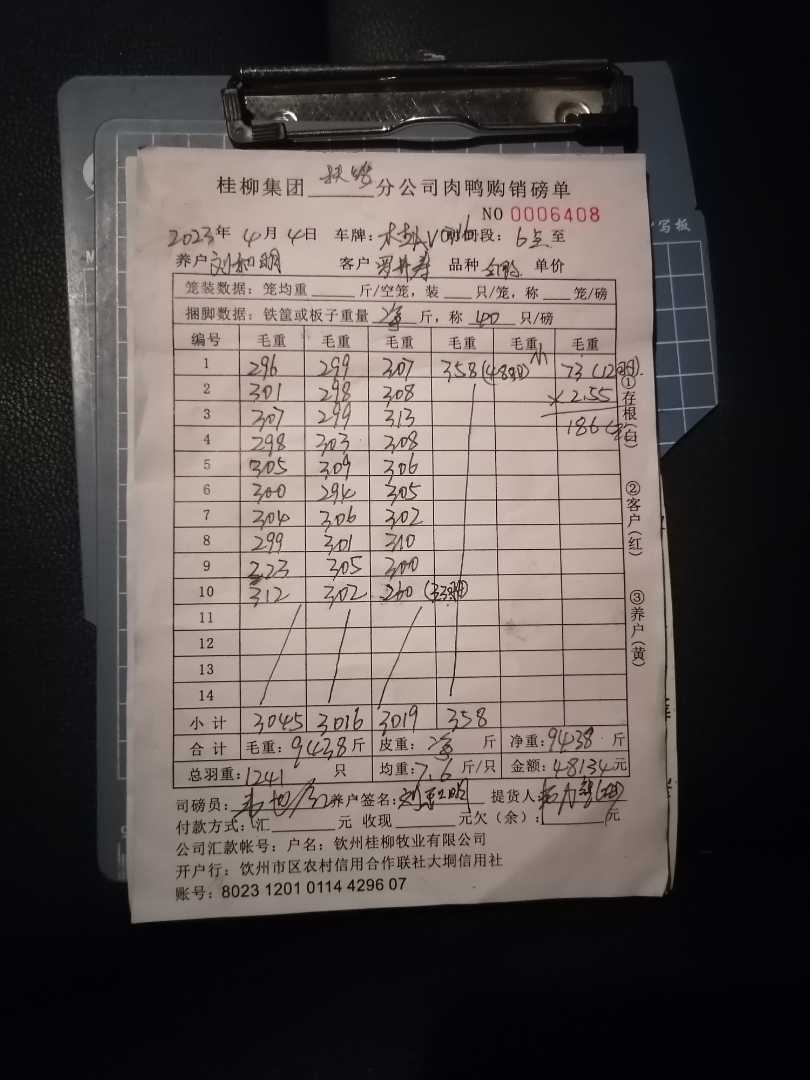 桂柳集团 分公司肉鸭购销磅单
NO 0006408
2023年 4月 4日 车牌: 时间段: 6点 至
养户 刘和明 客户 品种 单价
笼装数据: 笼均重 斤/空笼, 装 只/笼, 称 笼/磅
捆脚数据: 铁筐或板子重量 斤, 称 40 只/磅
编号 毛重 毛重 毛重 毛重 毛重 毛重
1 296 299 307 358 73
2 301 298 308 × 2.55
3 307 299 313 186
4 298 303 308
5 305 309 306
6 300 294 305
7 304 306 302
8 299 301 310
9 323 305 300
10 312 302 260
11
12
13
14
小计 3045 3016 3019 358
合计 毛重: 9438 斤 皮重: 斤 净重: 9438 斤
总羽重: 1241 只 均重: 7.6 斤/只 金额: 48134 元
司磅员: 养户签名: 提货人:
付款方式: 汇 元 收现 元欠(余): 元
公司汇款帐号: 户名: 钦州桂柳牧业有限公司
开户行: 钦州市区农村信用合作联社大垌信用社
账号: 8023 1201 0114 4296 07
①存根(白)
②客户(红)
③养户(黄)
写板